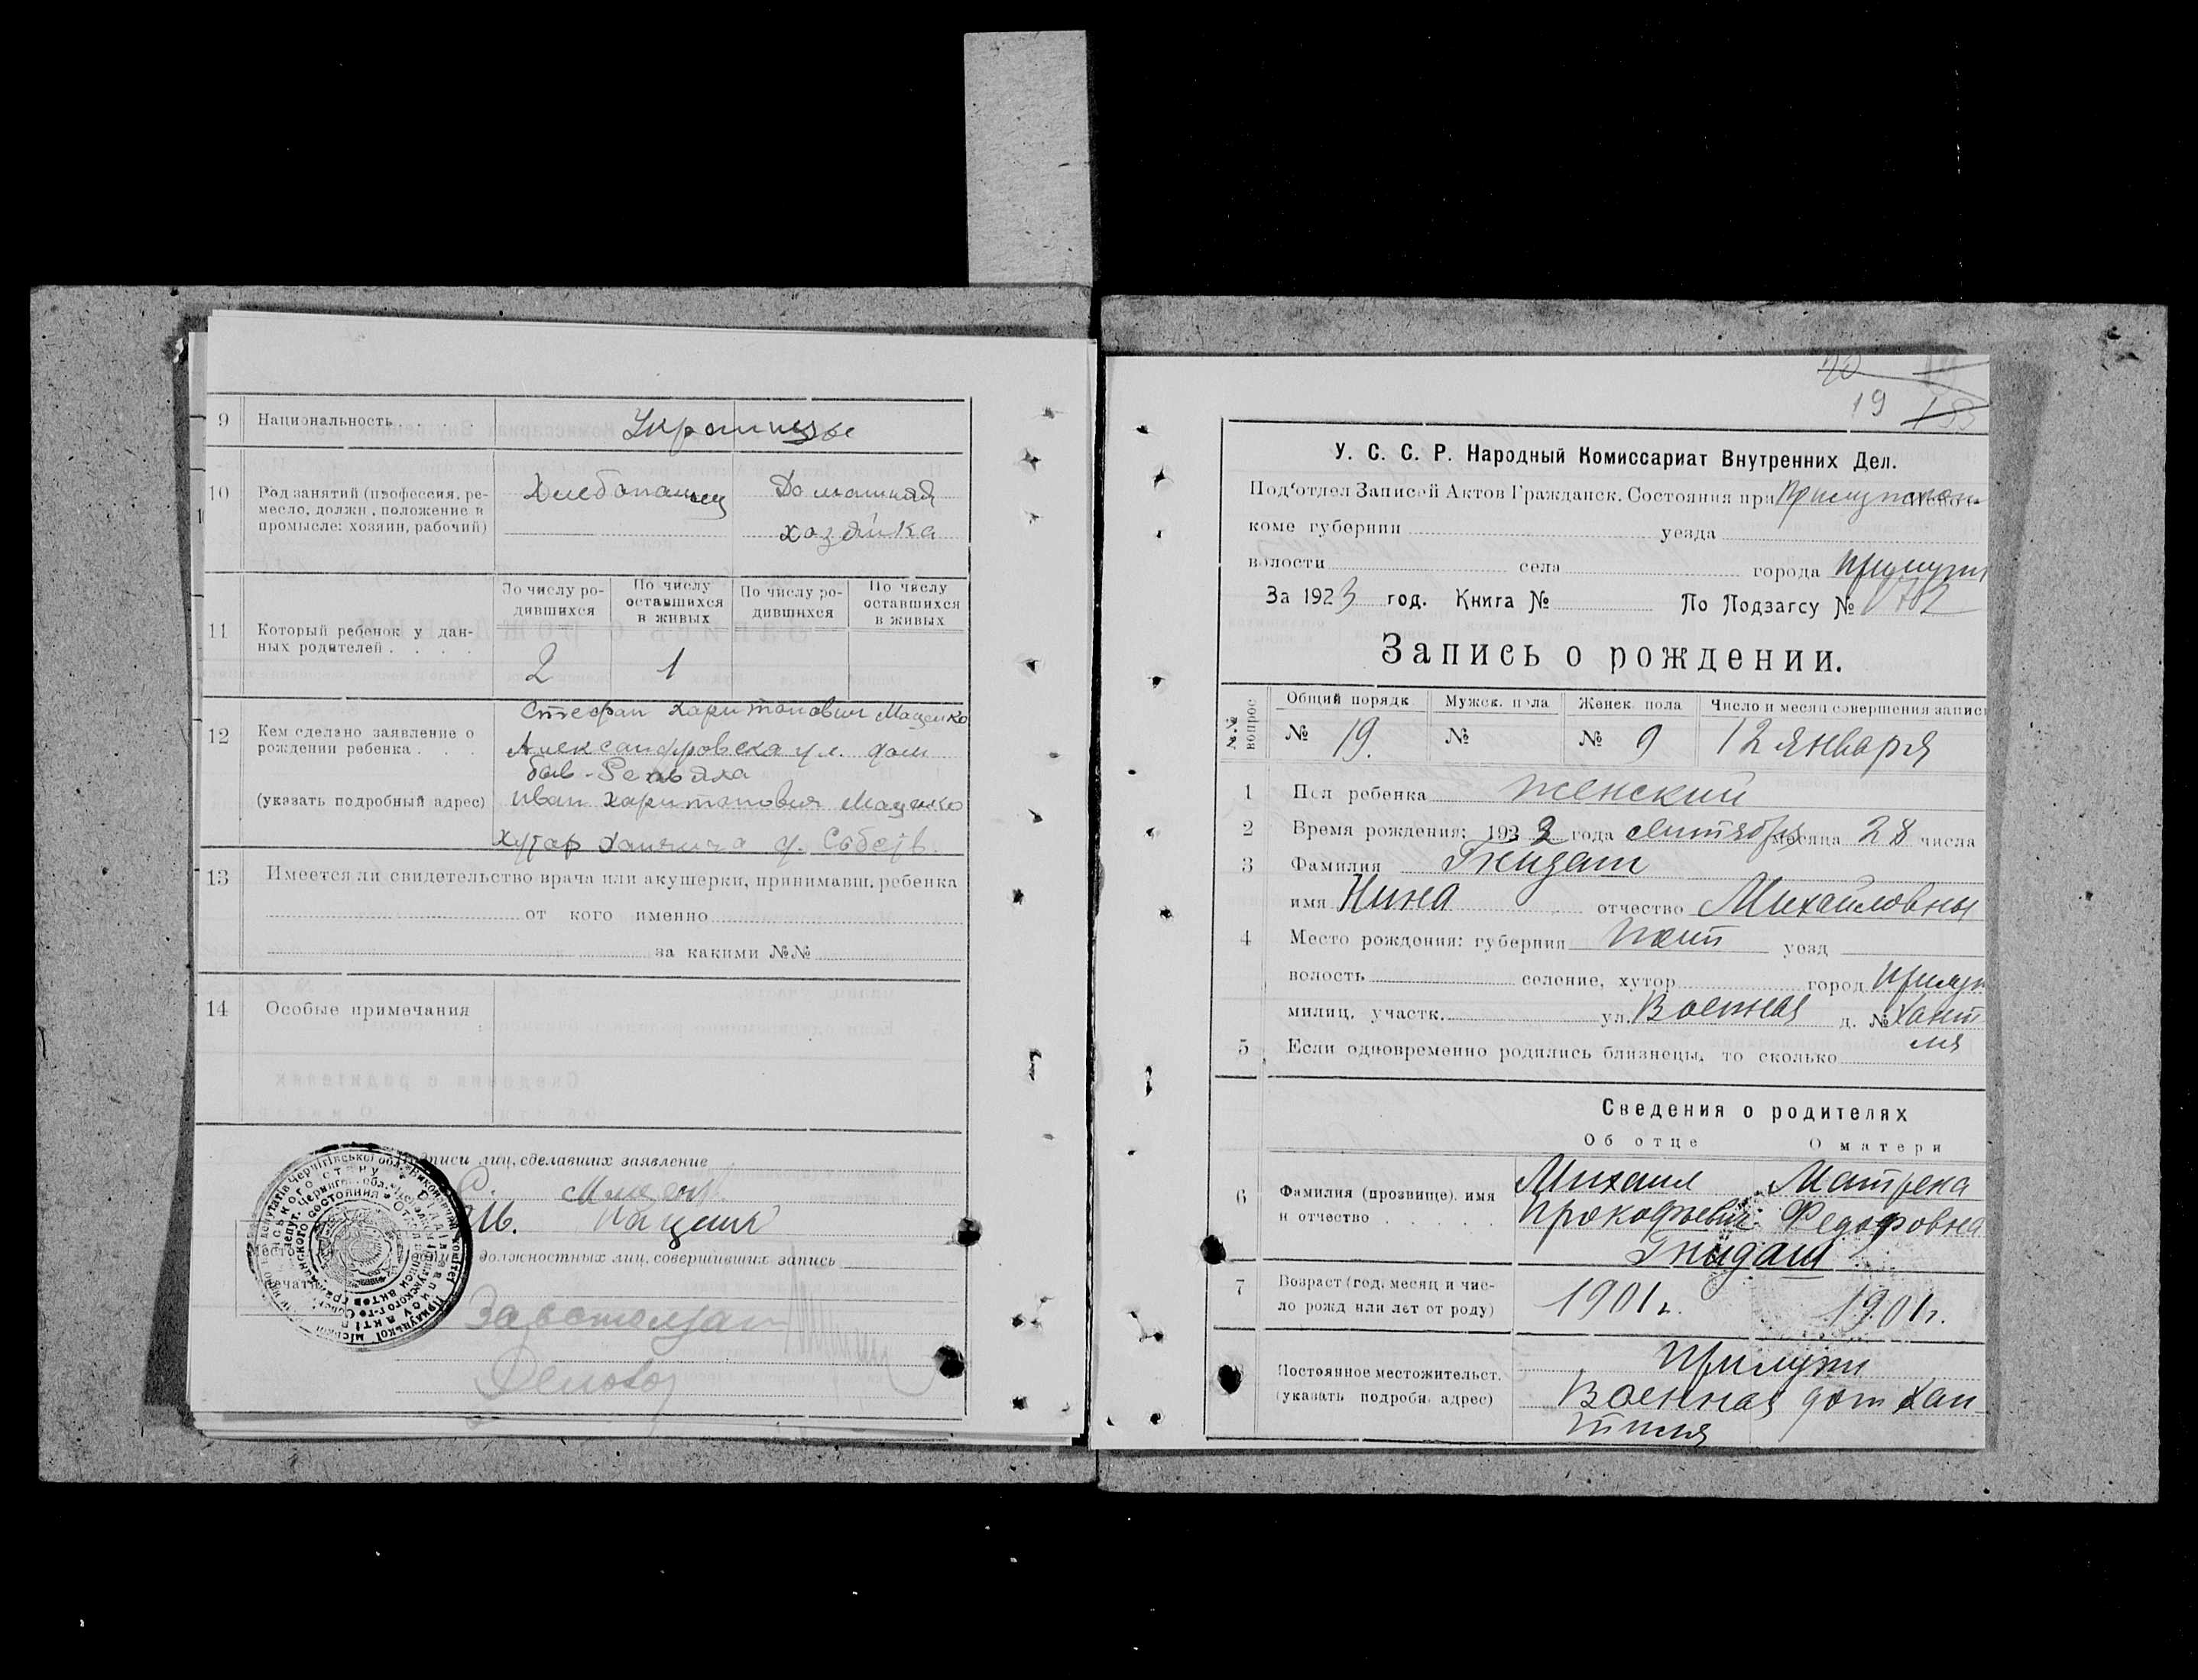 9 Национальность . . . . Украинцы
10 Род занятий (профессия, ре-
месло, должн., положение в
промысле: хозяин, рабочий)
Хлебопашец
Домашняя
хозяйка
По числу ро-
дившихся
По числу
оставшихся
в живых
По числу ро-
дившихся
По числу
оставшихся
в живых
11 Который ребенок у дан-
ных родителей . . . .
2 1
12 Кем сделано заявление о
рождении ребенка . . .
(указать подробный адрес)
Стефан Харитонович Маценко
Александровска ул. дом
Иван Харитонович Маценко
Хутор д. Собств.
13 Имеется ли свидетельство врача или акушерки, принимавш. ребенка
от кого именно
за какими №№
14 Особые примечания
Подписи лиц, сделавших заявление
С.
Ив. Маценко
должностных лиц, совершивших запись
Завстолом
Деловод
19
У. С. С. Р. Народный Комиссариат Внутренних Дел.
Под'отдел Записей Актов Гражданск. Состояния при
коме губернии уезда
волости села города Прилуки
За 1923 год. Книга № По Подзагсу №
Запись о рождении.
№№ вопрос
Общий порядк Мужск. пола Женск. пола Число и месяц совершения записи
№ 19. № № 9 12 января
1 Пол ребенка женский
2 Время рождения: 1922 года месяца 28 числа
3 Фамилия Гнидаш
имя Нина отчество Михайловны
4 Место рождения: губерния Полт уезд
волость селение, хутор город Прилук
милиц. участк. ул. Военная д. №
5 Если одновременно родились близнецы, то сколько
Сведения о родителях
Об отце О матери
6 Фамилия (прозвище), имя
и отчество . . . . .
Михаил Матрена
Прокофьевич Федоровна
Гнидаш
7 Возраст (год, месяц и чис-
ло рожд или лет от роду)
1901 г. 1901 г.
Постоянное местожительст.
(указать подробн. адрес)
Прилуки
Военная дом